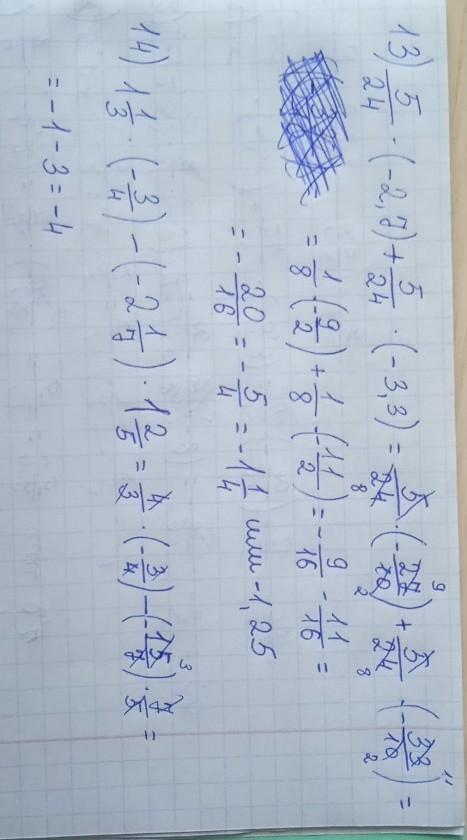 13) 5/24 · (-2,7) + 5/24 · (-3,3) = 5/24 · (-27/10) + 5/24 · (-33/10) =
= 1/8 · (-9/2) + 1/8 · (-11/2) = -9/16 - 11/16 =
= -20/16 = -5/4 = -1 1/4 или -1,25
14) 1 1/3 · (-3/4) - (-2 1/7) · 1 2/5 = 4/3 · (-3/4) - (-15/7) · 7/5 =
= -1 - 3 = -4